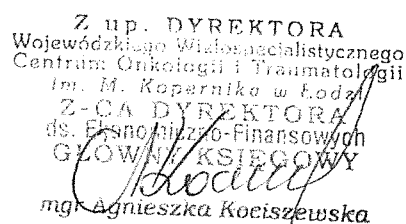 Z up. DYREKTORA
Wojewódzkiego Wielospecjalistycznego
Centrum Onkologii i Traumatologii
im. M. Kopernika w Łodzi
Z-CA DYREKTORA
ds. Ekonomiczno-Finansowych
GŁÓWNY KSIĘGOWY
mgr Agnieszka Kociszewska